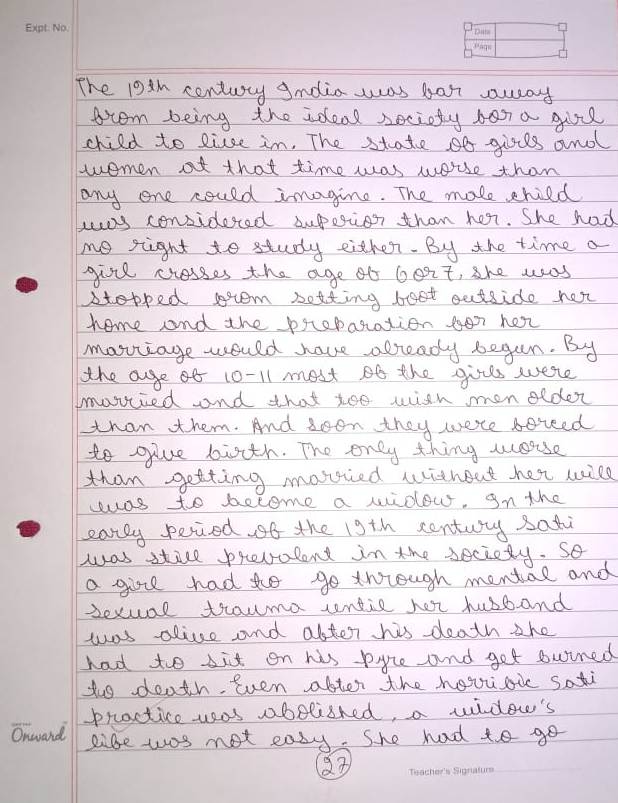 Expt. No.
Date
Page
The 19th century India was far away
from being the ideal society for a girl
child to live in. The state of girls and
women at that time was worse than
any one could imagine. The male child
was considered superior than her. She had
no right to study either. By the time a
girl crosses the age of 6 or 7, she was
stopped from setting foot outside her
home and the preparation for her
marriage would have already begun. By
the age of 10-11 most of the girls were
married and that too with men older
than them. And soon they were forced
to give birth. The only thing worse
than getting married without her will
was to become a widow. In the
early period of the 19th century Sati
was still prevalent in the society. So
a girl had to go through mental and
sexual trauma until her husband
was alive and after his death she
had to sit on his pyre and get burned
to death. Even after the horrific Sati
practice was abolished, a widow's
life was not easy. She had to go
Onward
27
Teacher's Signature